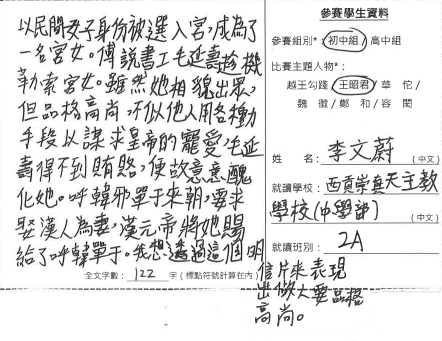 以民間女子身份被選入宮,成為了
一名宮女。傳說畫工毛延壽趁機
勒索宮女。雖然她相貌出眾,
但品格高尚,不似他人用各種
手段以謀求皇帝的寵愛,毛延
壽得不到賄賂,便故意意醜
化她。呼韓邪單于來朝,要求
娶漢人為妻,漢元帝將她賜
給了呼韓單于。我想透過這個明
全文字數: 122 字(標點符號計算在內)
信片來表現
出做人要品格
高尚。
參賽學生資料
參賽組別*:初中組/高中組
比賽主題人物*:
越王勾踐/王昭君/華佗/
魏徵/鄭和/容閎
姓名:李文蔚(中文)
就讀學校:西貢崇真天主教
學校(中學部)(中文)
就讀班別:2A